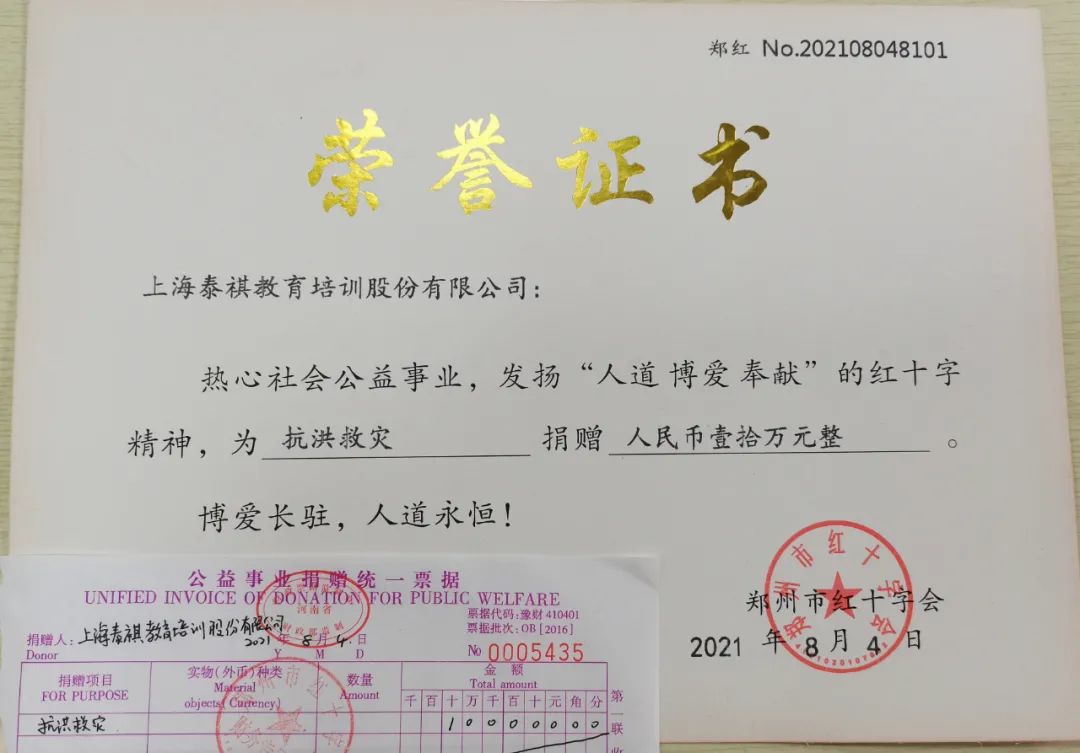 郑红 No.202108048101
荣誉证书
上海泰祺教育培训股份有限公司：
热心社会公益事业，发扬“人道 博爱 奉献”的红十字
精神，为 抗洪救灾 捐赠 人民币壹拾万元整 。
博爱长驻，人道永恒！
郑州市红十字会
2021 年 8 月 4 日
郑州市红十字会
公益事业捐赠统一票据
UNIFIED INVOICE OF DONATION FOR PUBLIC WELFARE
河南省
财政部监制
票据代码：豫财 410401
票据批次：OB [2016]
捐赠人：上海泰祺教育培训股份有限公司 2021 年 8 月 4 日
Donor Y M D
№ 0005435
捐赠项目 实物（外币）种类 数量 金额
FOR PURPOSE Material Amount Total amount
objects(Currency)
千 百 十 万 千 百 十 元 角 分
抗洪救灾 1 0 0 0 0 0 0 0
第一联
州市红十字